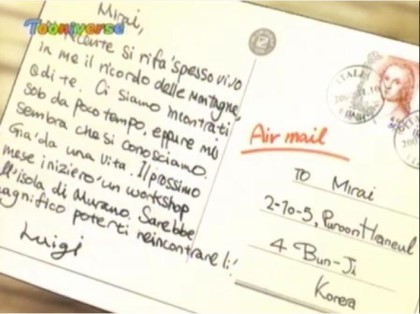 Tooniverse
Mirai,
mente si rifa' spesso vivo
in me il ricordo delle montagne,
e di te. Ci siamo incontrati
solo da poco tempo, eppure mi
sembra che si conosciamo
Gia' da una vita. Il prossimo
mese iniziero' un workshop
ll'isola di Murano. Sarebbe
agnifico poterti reincontrare lì!
Luigi
ITALIA
Air mail
To Mirai
2-10-5, Puroon Haneul
4 Bun-Ji
Korea